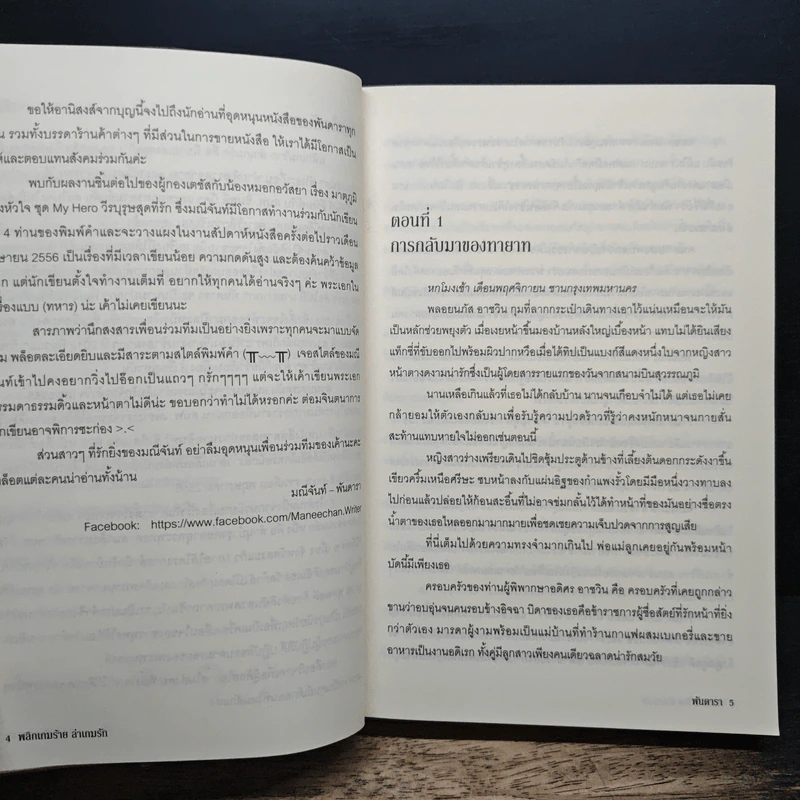 ขอให้อานิสงส์จากบุญนี้จงไปถึงนักอ่านที่อุดหนุนหนังสือของพันดาราทุก
น รวมทั้งบรรดาร้านค้าต่างๆ ที่มีส่วนในการขายหนังสือ ให้เราได้มีโอกาสเป็น
ห้และตอบแทนสังคมร่วมกันค่ะ
พบกับผลงานชิ้นต่อไปของผู้กองเตชัสกับน้องหมอกอวัสยา เรื่อง มาตุภูมิ
งหัวใจ ชุด My Hero วีรบุรุษสุดที่รัก ซึ่งมณีจันท์มีโอกาสทำงานร่วมกับนักเขียน
4 ท่านของพิมพ์คำและจะวางแผงในงานสัปดาห์หนังสือครั้งต่อไปราวเดือน
ษายน 2556 เป็นเรื่องที่มีเวลาเขียนน้อย ความกดดันสูง และต้องค้นคว้าข้อมูล
ก แต่นักเขียนตั้งใจทำงานเต็มที่ อยากให้ทุกคนได้อ่านจริงๆ ค่ะ พระเอกใน
รื่องแบบ (ทหาร) น่ะ เค้าไม่เคยเขียนนะ
สารภาพว่านึกสงสารเพื่อนร่วมทีมเป็นอย่างยิ่งเพราะทุกคนจะมาแบบจัด
ม พล็อตละเอียดยิบและมีสาระตามสไตล์พิมพ์คำ (╥﹏╥) เจอสไตล์ของมณี
นท์เข้าไปคงอยากวิ่งไปอ๊อกเป็นแถวๆ กรั่กๆๆๆๆ แต่จะให้เค้าเขียนพระเอก
รรมดาธรรมดิ้วและหน้าตาไม่ดีน่ะ ขอบอกว่าทำไม่ได้หรอกค่ะ ต่อมจินตนาการ
กเขียนอาจพิการซะก่อง >.<
ส่วนสาวๆ ที่รักยิ่งของมณีจันท์ อย่าลืมอุดหนุนเพื่อนร่วมทีมของเค้านะคะ
ล็อตแต่ละคนน่าอ่านทั้งน้าน
มณีจันท์ – พันดารา
Facebook: https://www.facebook.com/Maneechan.Writer
4 พลิกเกมร้าย ล่าเกมรัก
ตอนที่ 1
การกลับมาของทายาท
หกโมงเช้า เดือนพฤศจิกายน ชานกรุงเทพมหานคร
พลอยนภัส อาชวิน กุมที่ลากกระเป๋าเดินทางเอาไว้แน่นเหมือนจะให้มัน
เป็นหลักช่วยพยุงตัว เมื่อเงยหน้าขึ้นมองบ้านหลังใหญ่เบื้องหน้า แทบไม่ได้ยินเสียง
แท็กซี่ที่ขับออกไปพร้อมผิวปากหวือเมื่อได้ทิปเป็นแบงก์สีแดงหนึ่งใบจากหญิงสาว
หน้าตางดงามน่ารักซึ่งเป็นผู้โดยสารรายแรกของวันจากสนามบินสุวรรณภูมิ
นานเหลือเกินแล้วที่เธอไม่ได้กลับบ้าน นานจนเกือบจำไม่ได้ แต่เธอไม่เคย
กล้ายอมให้ตัวเองกลับมาเพื่อรับรู้ความปวดร้าวที่รู้ว่าคงหนักหนาจนกายสั่น
สะท้านแทบหายใจไม่ออกเช่นตอนนี้
หญิงสาวร่างเพรียวเดินไปชิดซุ้มประตูด้านข้างที่เลี้ยงต้นดอกกระดังงาขึ้น
เขียวครึ้มเหนือศีรษะ ซบหน้าลงกับแผ่นอิฐของกำแพงรั้วโดยมีมือหนึ่งวางทาบลง
ไปก่อนแล้วปล่อยให้ก้อนสะอื้นที่ไม่อาจข่มกลั้นไว้ได้ทำหน้าที่ของมันอย่างซื่อตรง
น้ำตาของเธอไหลออกมามากมายเพื่อชดเชยความเจ็บปวดจากการสูญเสีย
ที่นี่เต็มไปด้วยความทรงจำมากเกินไป พ่อแม่ลูกเคยอยู่กันพร้อมหน้า
บัดนี้มีเพียงเธอ
ครอบครัวของท่านผู้พิพากษาอดิศร อาชวิน คือ ครอบครัวที่เคยถูกกล่าว
ขานว่าอบอุ่นจนคนรอบข้างอิจฉา บิดาของเธอคือข้าราชการผู้ซื่อสัตย์ที่รักหน้าที่ยิ่ง
กว่าตัวเอง มารดาผู้งามพร้อมเป็นแม่บ้านที่ทำร้านกาแฟผสมเบเกอรี่และขาย
อาหารเป็นงานอดิเรก ทั้งคู่มีลูกสาวเพียงคนเดียวฉลาดน่ารักสมวัย
พันดารา 5